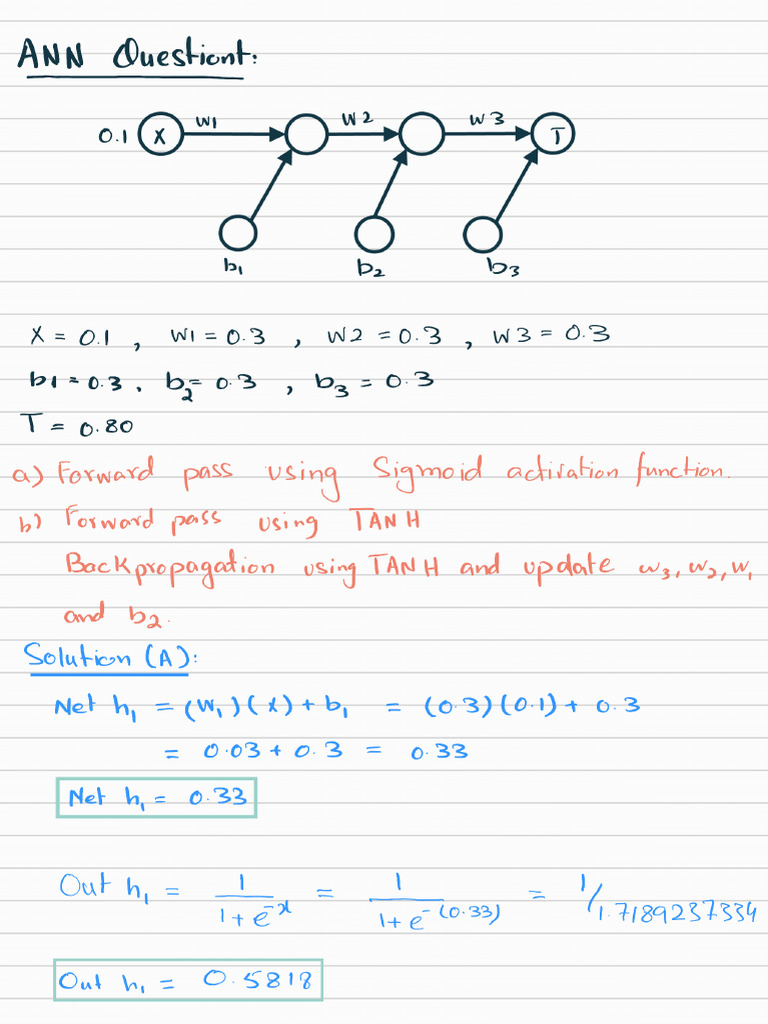 ANN Questiont:
0.1 X w1 w2 w3 T
b1 b2 b3
X = 0.1 , W1 = 0.3 , W2 = 0.3 , W3 = 0.3
b1 = 0.3 , b2 = 0.3 , b3 = 0.3
T = 0.80
a) Forward pass using Sigmoid activation function.
b) Forward pass using TANH
Backpropagation using TANH and update w3, w2, w1
and b2.
Solution (A):
Net h1 = (W1)(X) + b1 = (0.3)(0.1) + 0.3
= 0.03 + 0.3 = 0.33
Net h1 = 0.33
Out h1 = 1/1+e^-x = 1/1+e^-(0.33) = 1/1.7189237334
Out h1 = 0.5818